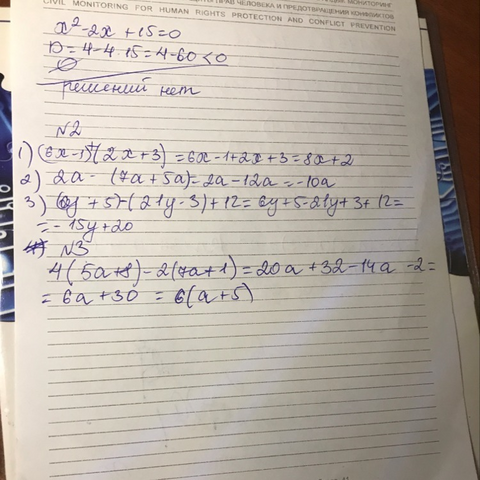 ПРАВ ЧЕЛОВЕКА И ПРЕДОТВРАЩЕНИЯ КОНФЛИКТОВ
CIVIL MONITORING FOR HUMAN RIGHTS PROTECTION AND CONFLICT PREVENTION
x²-2x+15=0
D=4-4·15=4-60<0
∅
решений нет
N2
1) (6x-1)+(2x+3)=6x-1+2x+3=8x+2
2) 2a-(7a+5a)=2a-12a=-10a
3) (6y+5)-(21y-3)+12=6y+5-21y+3+12=
=-15y+20
4) N3
4(5a+8)-2(7a+1)=20a+32-14a-2=
=6a+30=6(a+5)